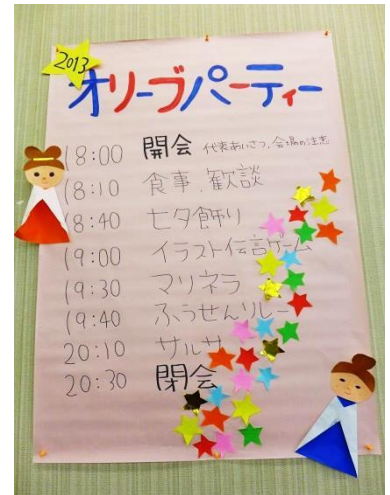 2013
オリーブパーティー
18:00 開会 代表あいさつ、会場の注意
18:10 食事、歓談
18:40 七夕飾り
19:00 イラスト伝言ゲーム
19:30 マリネラ
19:40 ふうせんリレー
20:10 サルサ
20:30 閉会